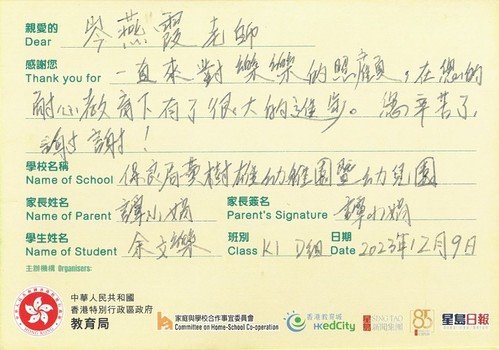 親愛的
Dear 岑燕霞老師
感謝您
Thank you for 一直來對樂樂的照顧，在您的
耐心教育下有了很大的進步。您辛苦了，
謝謝！
學校名稱
Name of School 保良局莫樹雄幼稚園暨幼兒園
家長姓名 家長簽名
Name of Parent 譚小娟 Parent's Signature 譚小娟
學生姓名 班別 日期
Name of Student 余文樂 Class K1 D組 Date 2023年12月9日
主辦機構 Organisers:
中華人民共和國
香港特別行政區政府
教育局
家庭與學校合作事宜委員會
Committee on Home-School Co-operation
香港教育城
HKedCity
SING TAO
星島新聞集團
85
星島日報